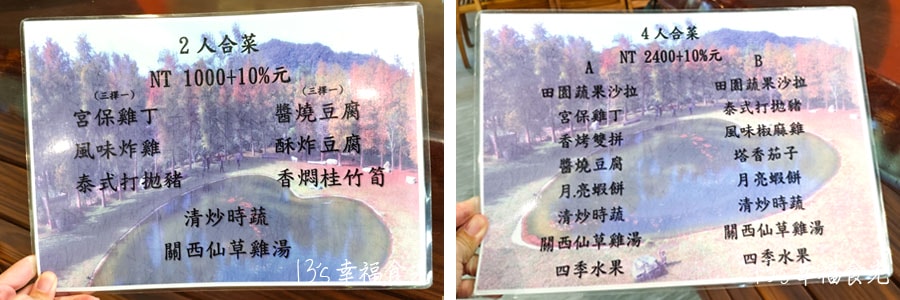 2人合菜
NT 1000+10%元
(三擇一) (三擇一)
宮保雞丁 醬燒豆腐
風味炸雞 酥炸豆腐
泰式打拋豬 香燜桂竹筍
清炒時蔬
關西仙草雞湯
13's幸福食光
4人合菜
NT 2400+10%元
A
田園蔬果沙拉
宮保雞丁
香烤雙拼
醬燒豆腐
月亮蝦餅
清炒時蔬
關西仙草雞湯
四季水果
B
田園蔬果沙拉
泰式打拋豬
風味椒麻雞
塔香茄子
月亮蝦餅
清炒時蔬
關西仙草雞湯
四季水果